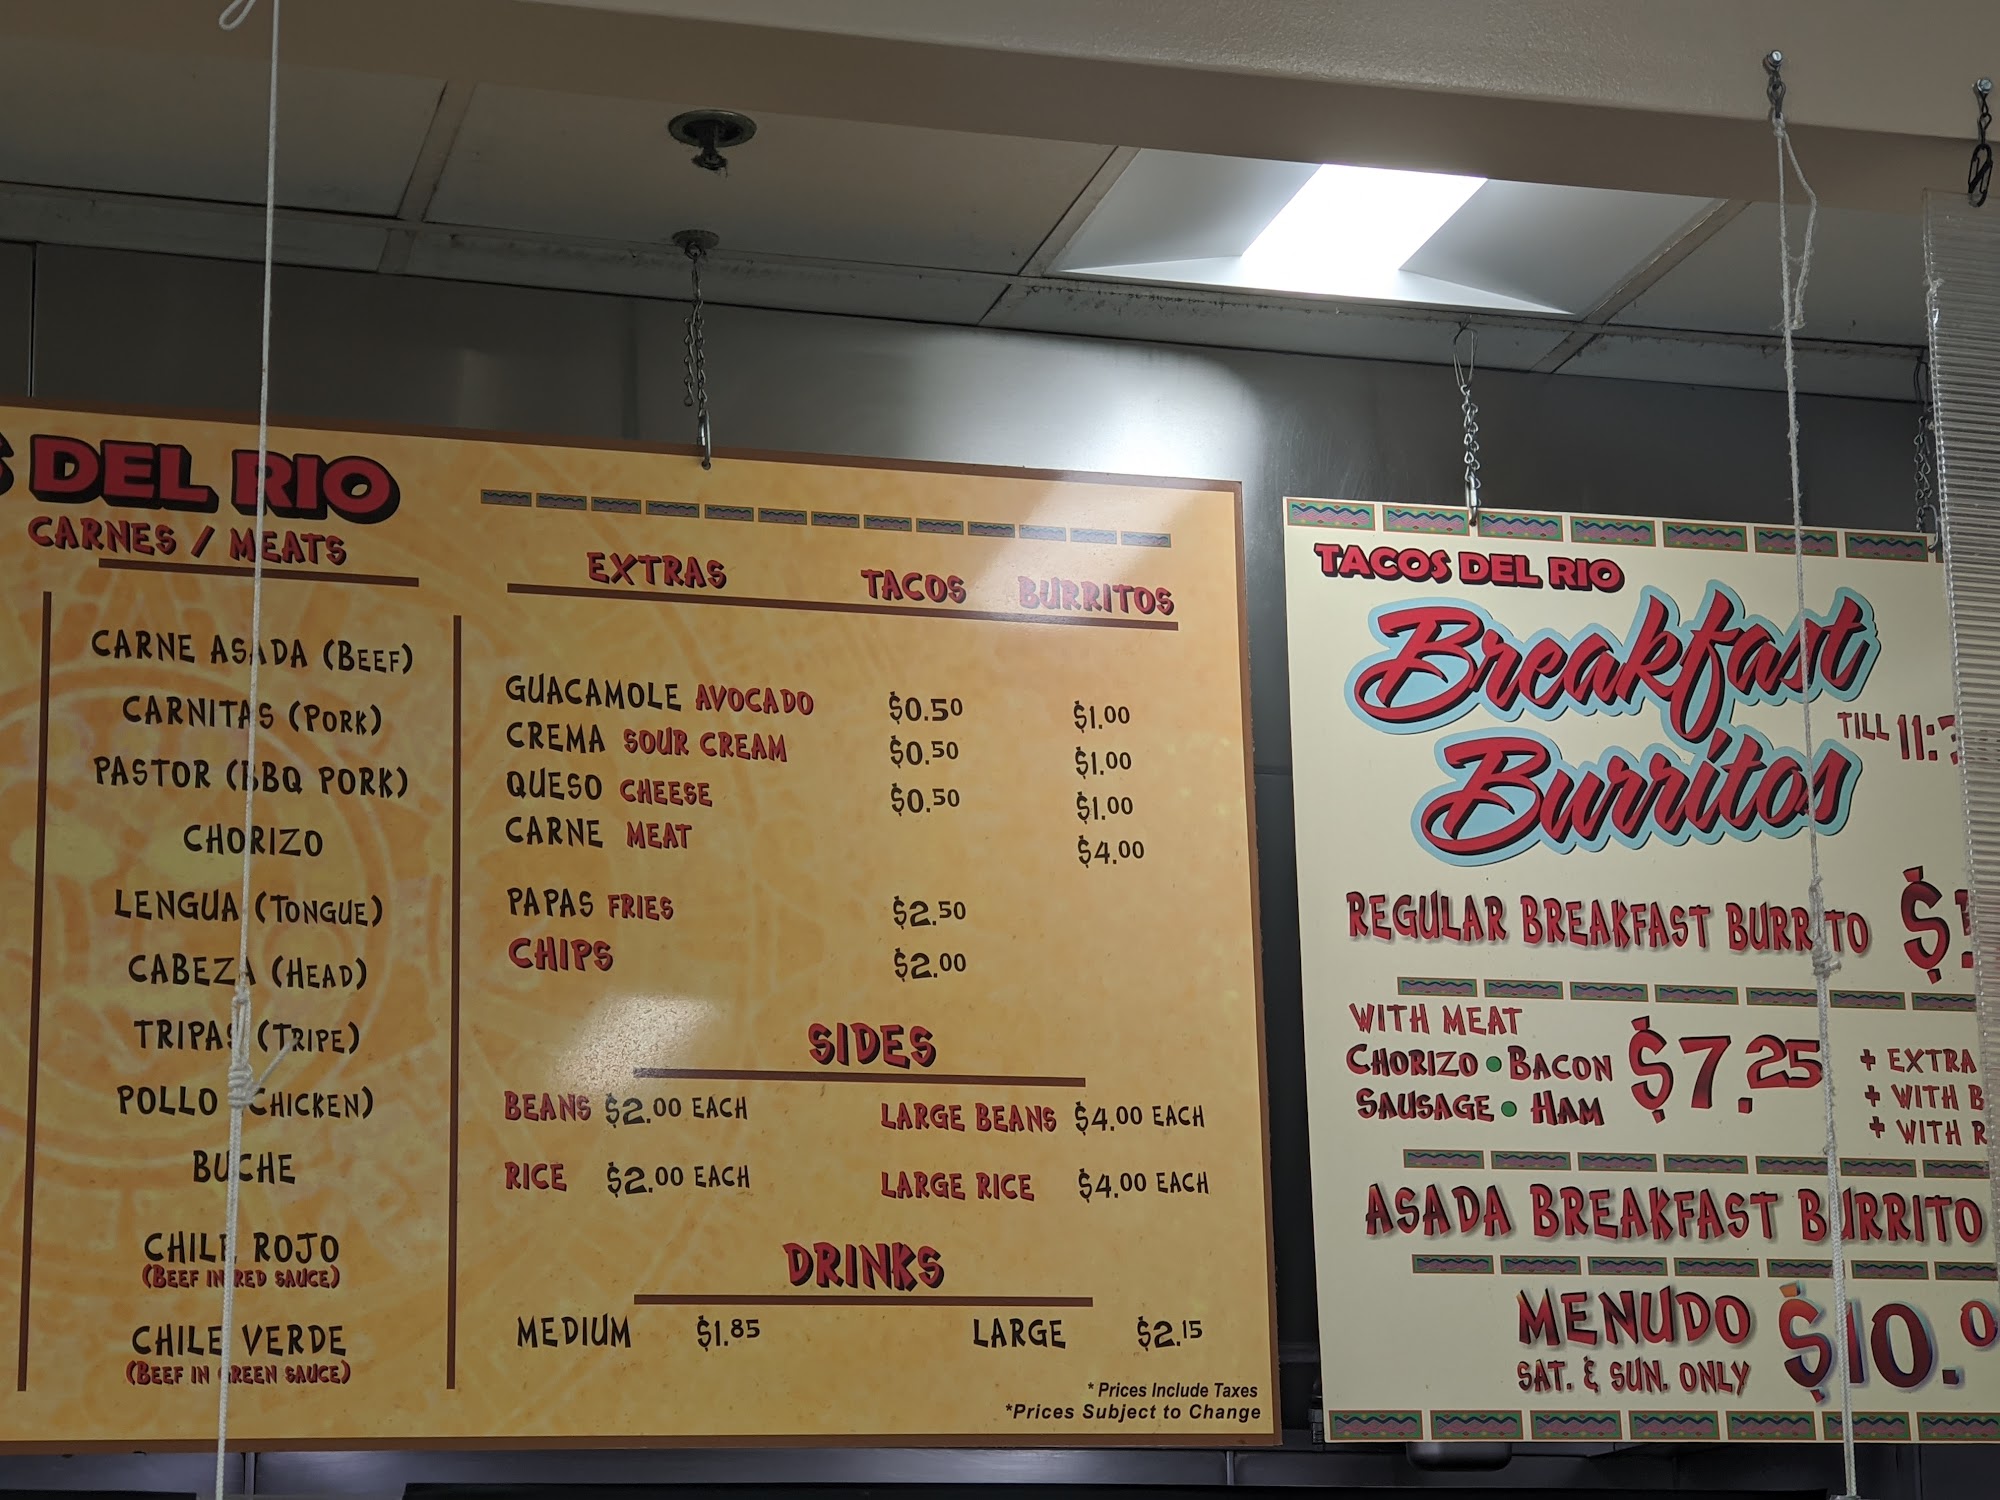 DEL RIO
CARNES / MEATS
CARNE ASADA (BEEF)
CARNITAS (PORK)
PASTOR (BBQ PORK)
CHORIZO
LENGUA (TONGUE)
CABEZA (HEAD)
TRIPAS (TRIPE)
POLLO (CHICKEN)
BUCHE
CHILE ROJO
(BEEF IN RED SAUCE)
CHILE VERDE
(BEEF IN GREEN SAUCE)
EXTRAS TACOS BURRITOS
GUACAMOLE AVOCADO $0.50 $1.00
CREMA SOUR CREAM $0.50 $1.00
QUESO CHEESE $0.50 $1.00
CARNE MEAT $4.00
PAPAS FRIES $2.50
CHIPS $2.00
SIDES
BEANS $2.00 EACH LARGE BEANS $4.00 EACH
RICE $2.00 EACH LARGE RICE $4.00 EACH
DRINKS
MEDIUM $1.85 LARGE $2.15
* Prices Include Taxes
*Prices Subject to Change
TACOS DEL RIO
Breakfast
Burritos
TILL
REGULAR BREAKFAST BURRITO
WITH MEAT
CHORIZO • BACON
SAUSAGE • HAM
$7.25
+ EXTRA
+ WITH
+ WITH
ASADA BREAKFAST BURRITO
MENUDO
SAT. & SUN. ONLY
$10.0